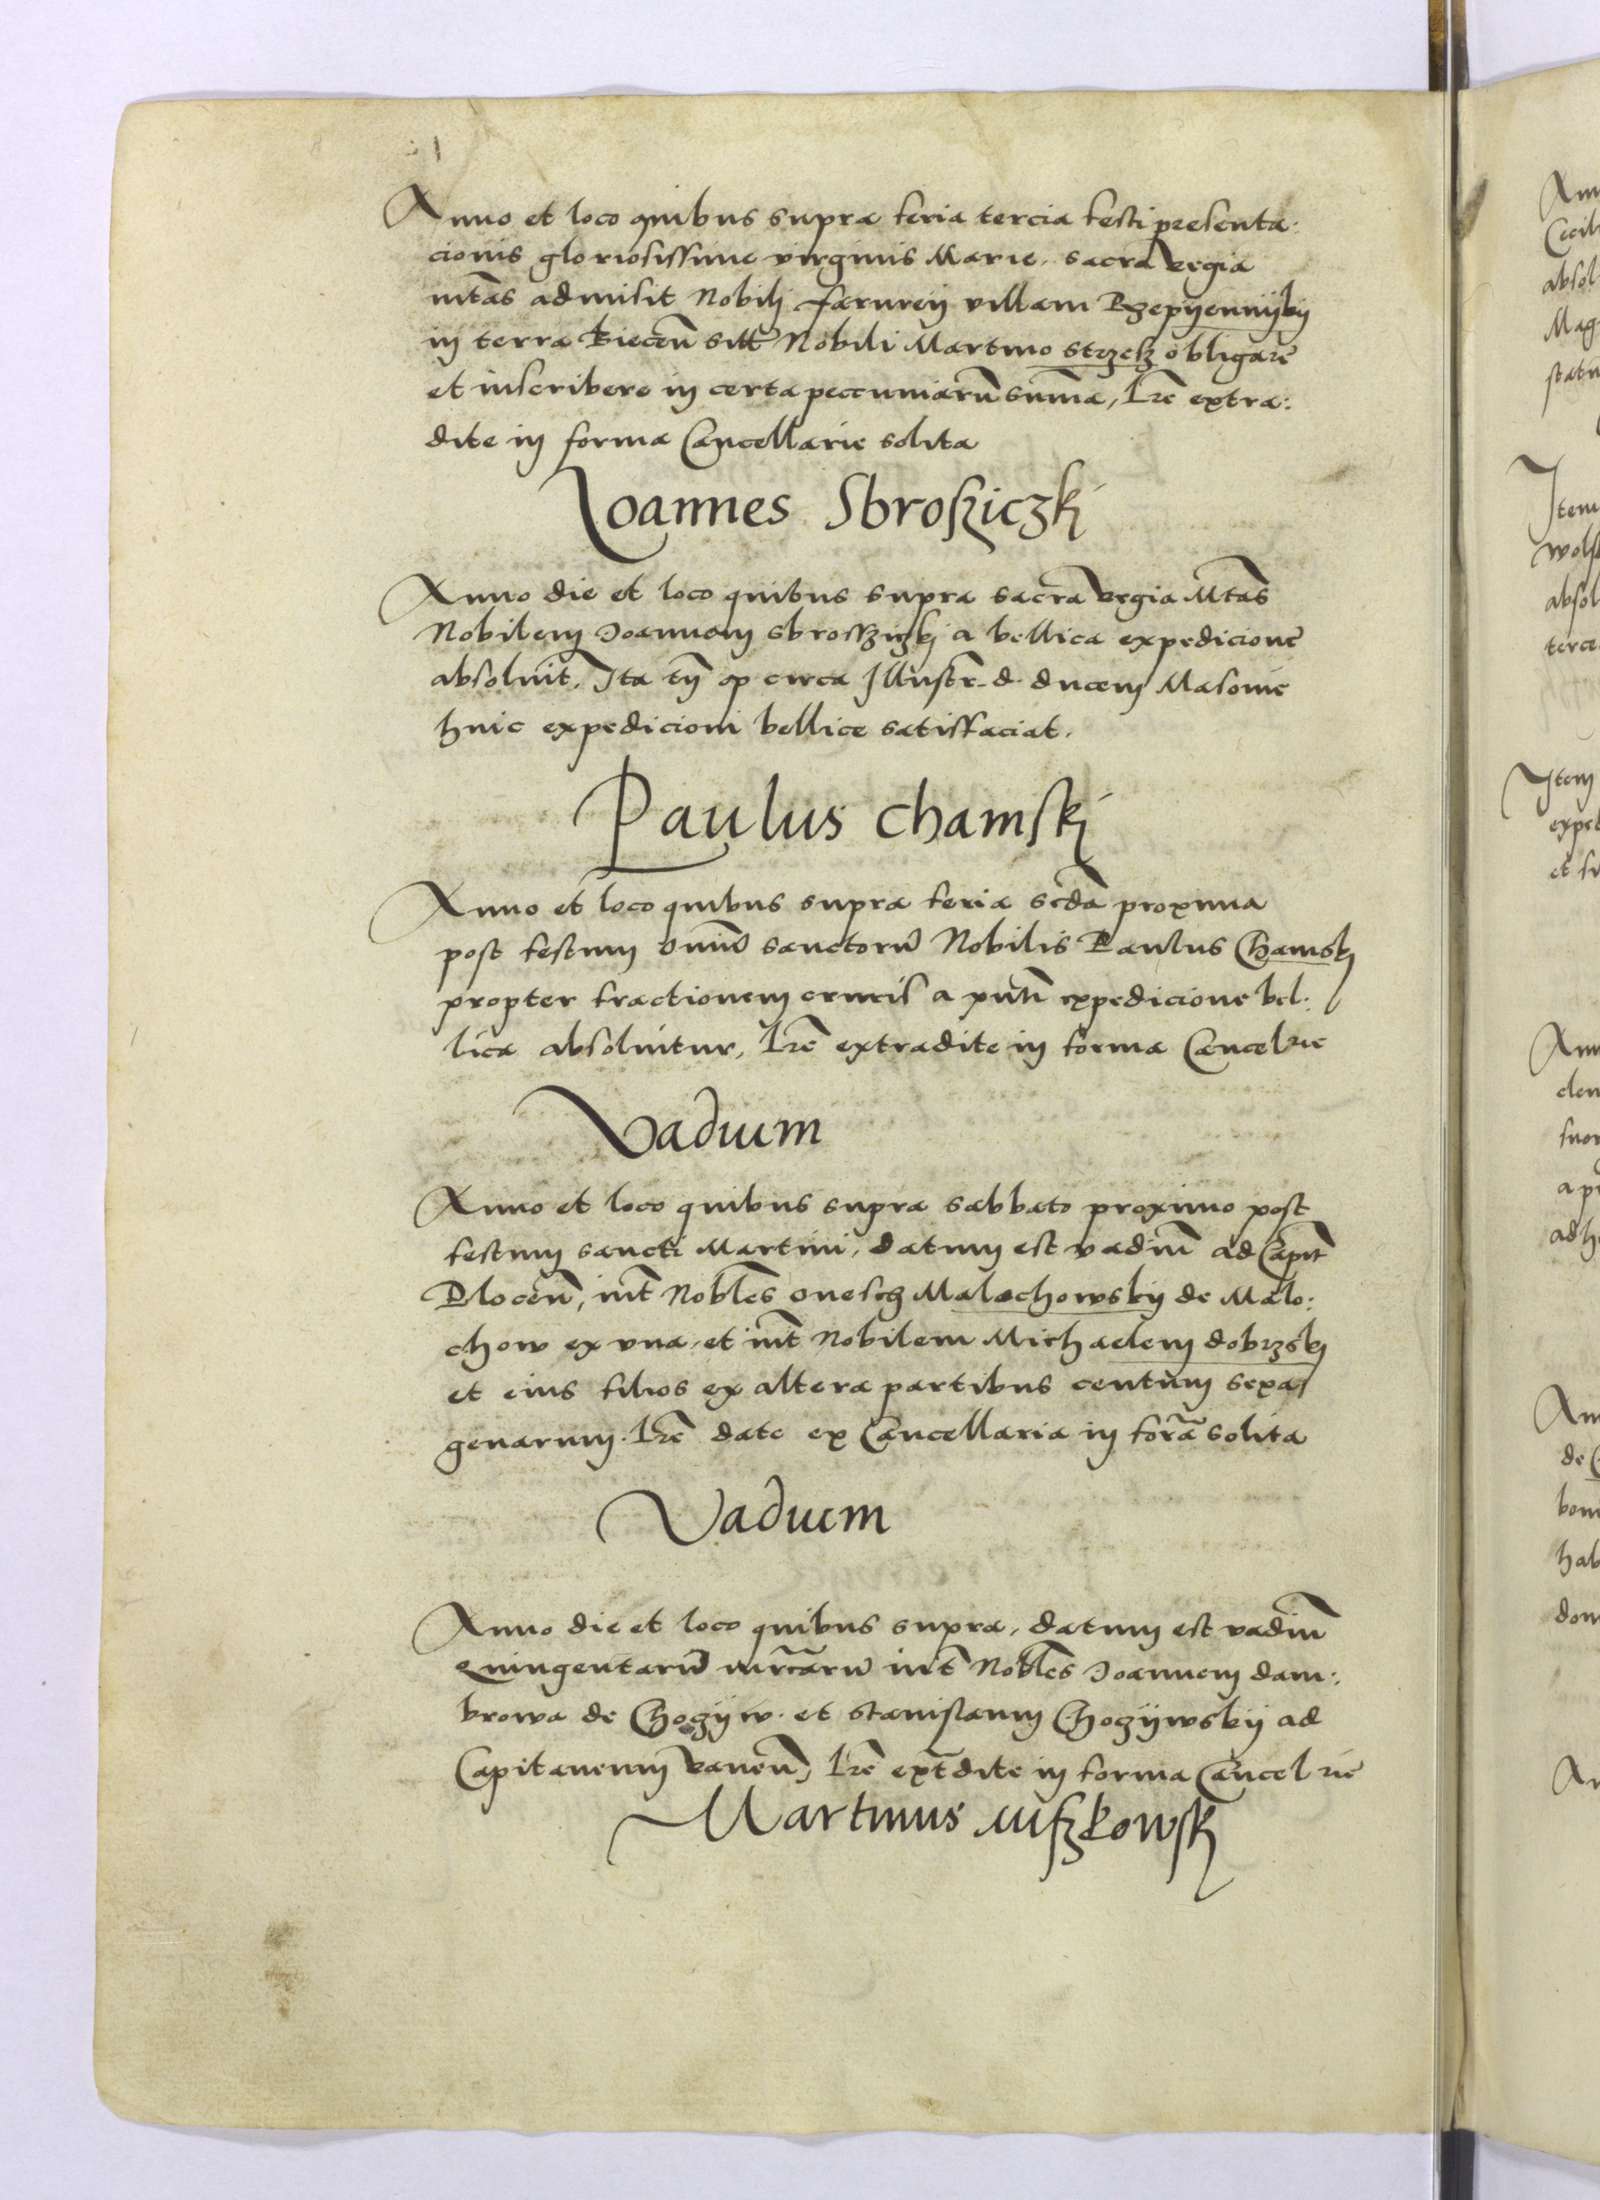 Anno et loco quibus supra feria tercia festi presenta:
cionis gloriosissime virginis Marie, sacra regia
mtas admisit Nobili Farurey villam Rzepyennyky
in terra Biecen sitt Nobili Martino strzesz obligare
et inscribere in certa peccuniaru suma, Lre extra:
dite in forma Cancellarie solita
Ioannes Sbrosziczkj
Anno die et loco quibus supra sacra regia Mtas
Nobilem Joannem sbrossziczkj a bellica expedicione
absoluit, Ita tn q circa Illustr. d. ducem Masouie
huic expedicioni bellice satisfaciat.
Paulus Chamskj
Anno et loco quibus supra feria scda proxima
post festum omniu sanctoru Nobilis Paulus Chamskj
propter fractionem cruris a pnti expedicione bel:
lica absoluitur, Lre extradite in forma Cancelrie
Vadium
Anno et loco quibus supra sabbato proximo post
festum sancti Martini, datum est vadiu ad Capit
Plocen, int Nobles onesch Malachowsky de Malo:
chow ex vna, et int Nobilem Michaelem dobrzskj
et eius filios ex altera partibus centum sexa
genarum. Lre date ex Cancellaria in fora solita
Vadium
Anno die et loco quibus supra, datum est vadiu
Quingentaru mrcaru int Nobles Joannem dam:
browa de Chogyw. et stanislaum Chogywsky ad
Capitaneum Raven, Lre extdite in forma Cancelrie
Martinus Miszkowskj
Ann
Cecili
absol
Mag
statu
Item
wols
absol
terce
Item
exped
et si
Ann
clen
suor
a pr
ad h
An
de C
bon
hab
dom
An